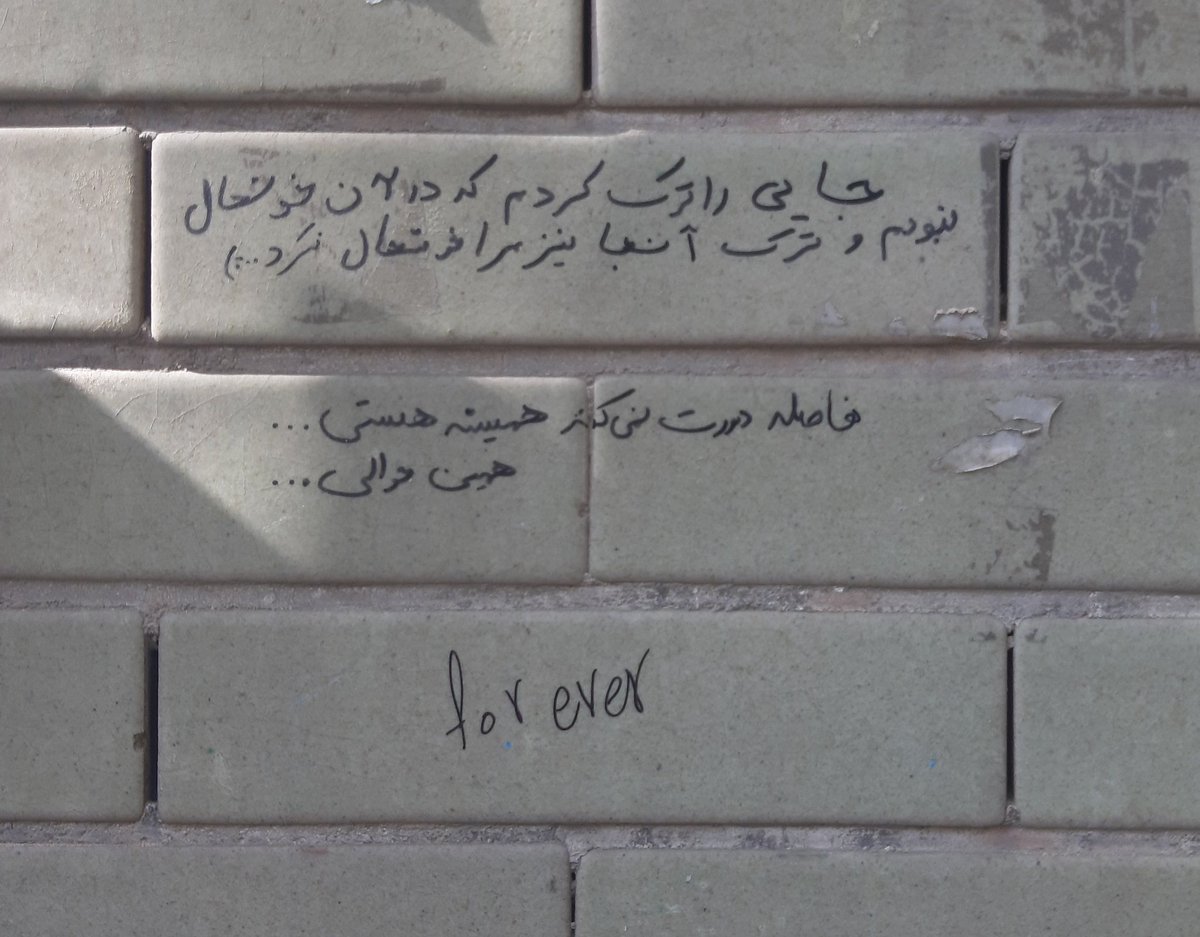 جایی را ترک کردم که در آن خوشحال
نبودم و ترک آنجا نیز مرا خوشحال نکرد..:)
فاصله دورت نمی‌کند همیشه هستی...
همین حوالی...
for ever